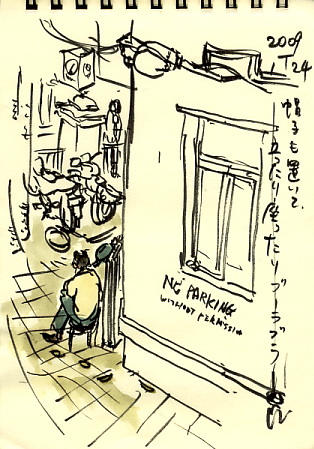 2009
1/24
帽子も置いて、
立ったり座ったりブーラブラ
NO PARKING
WITHOUT